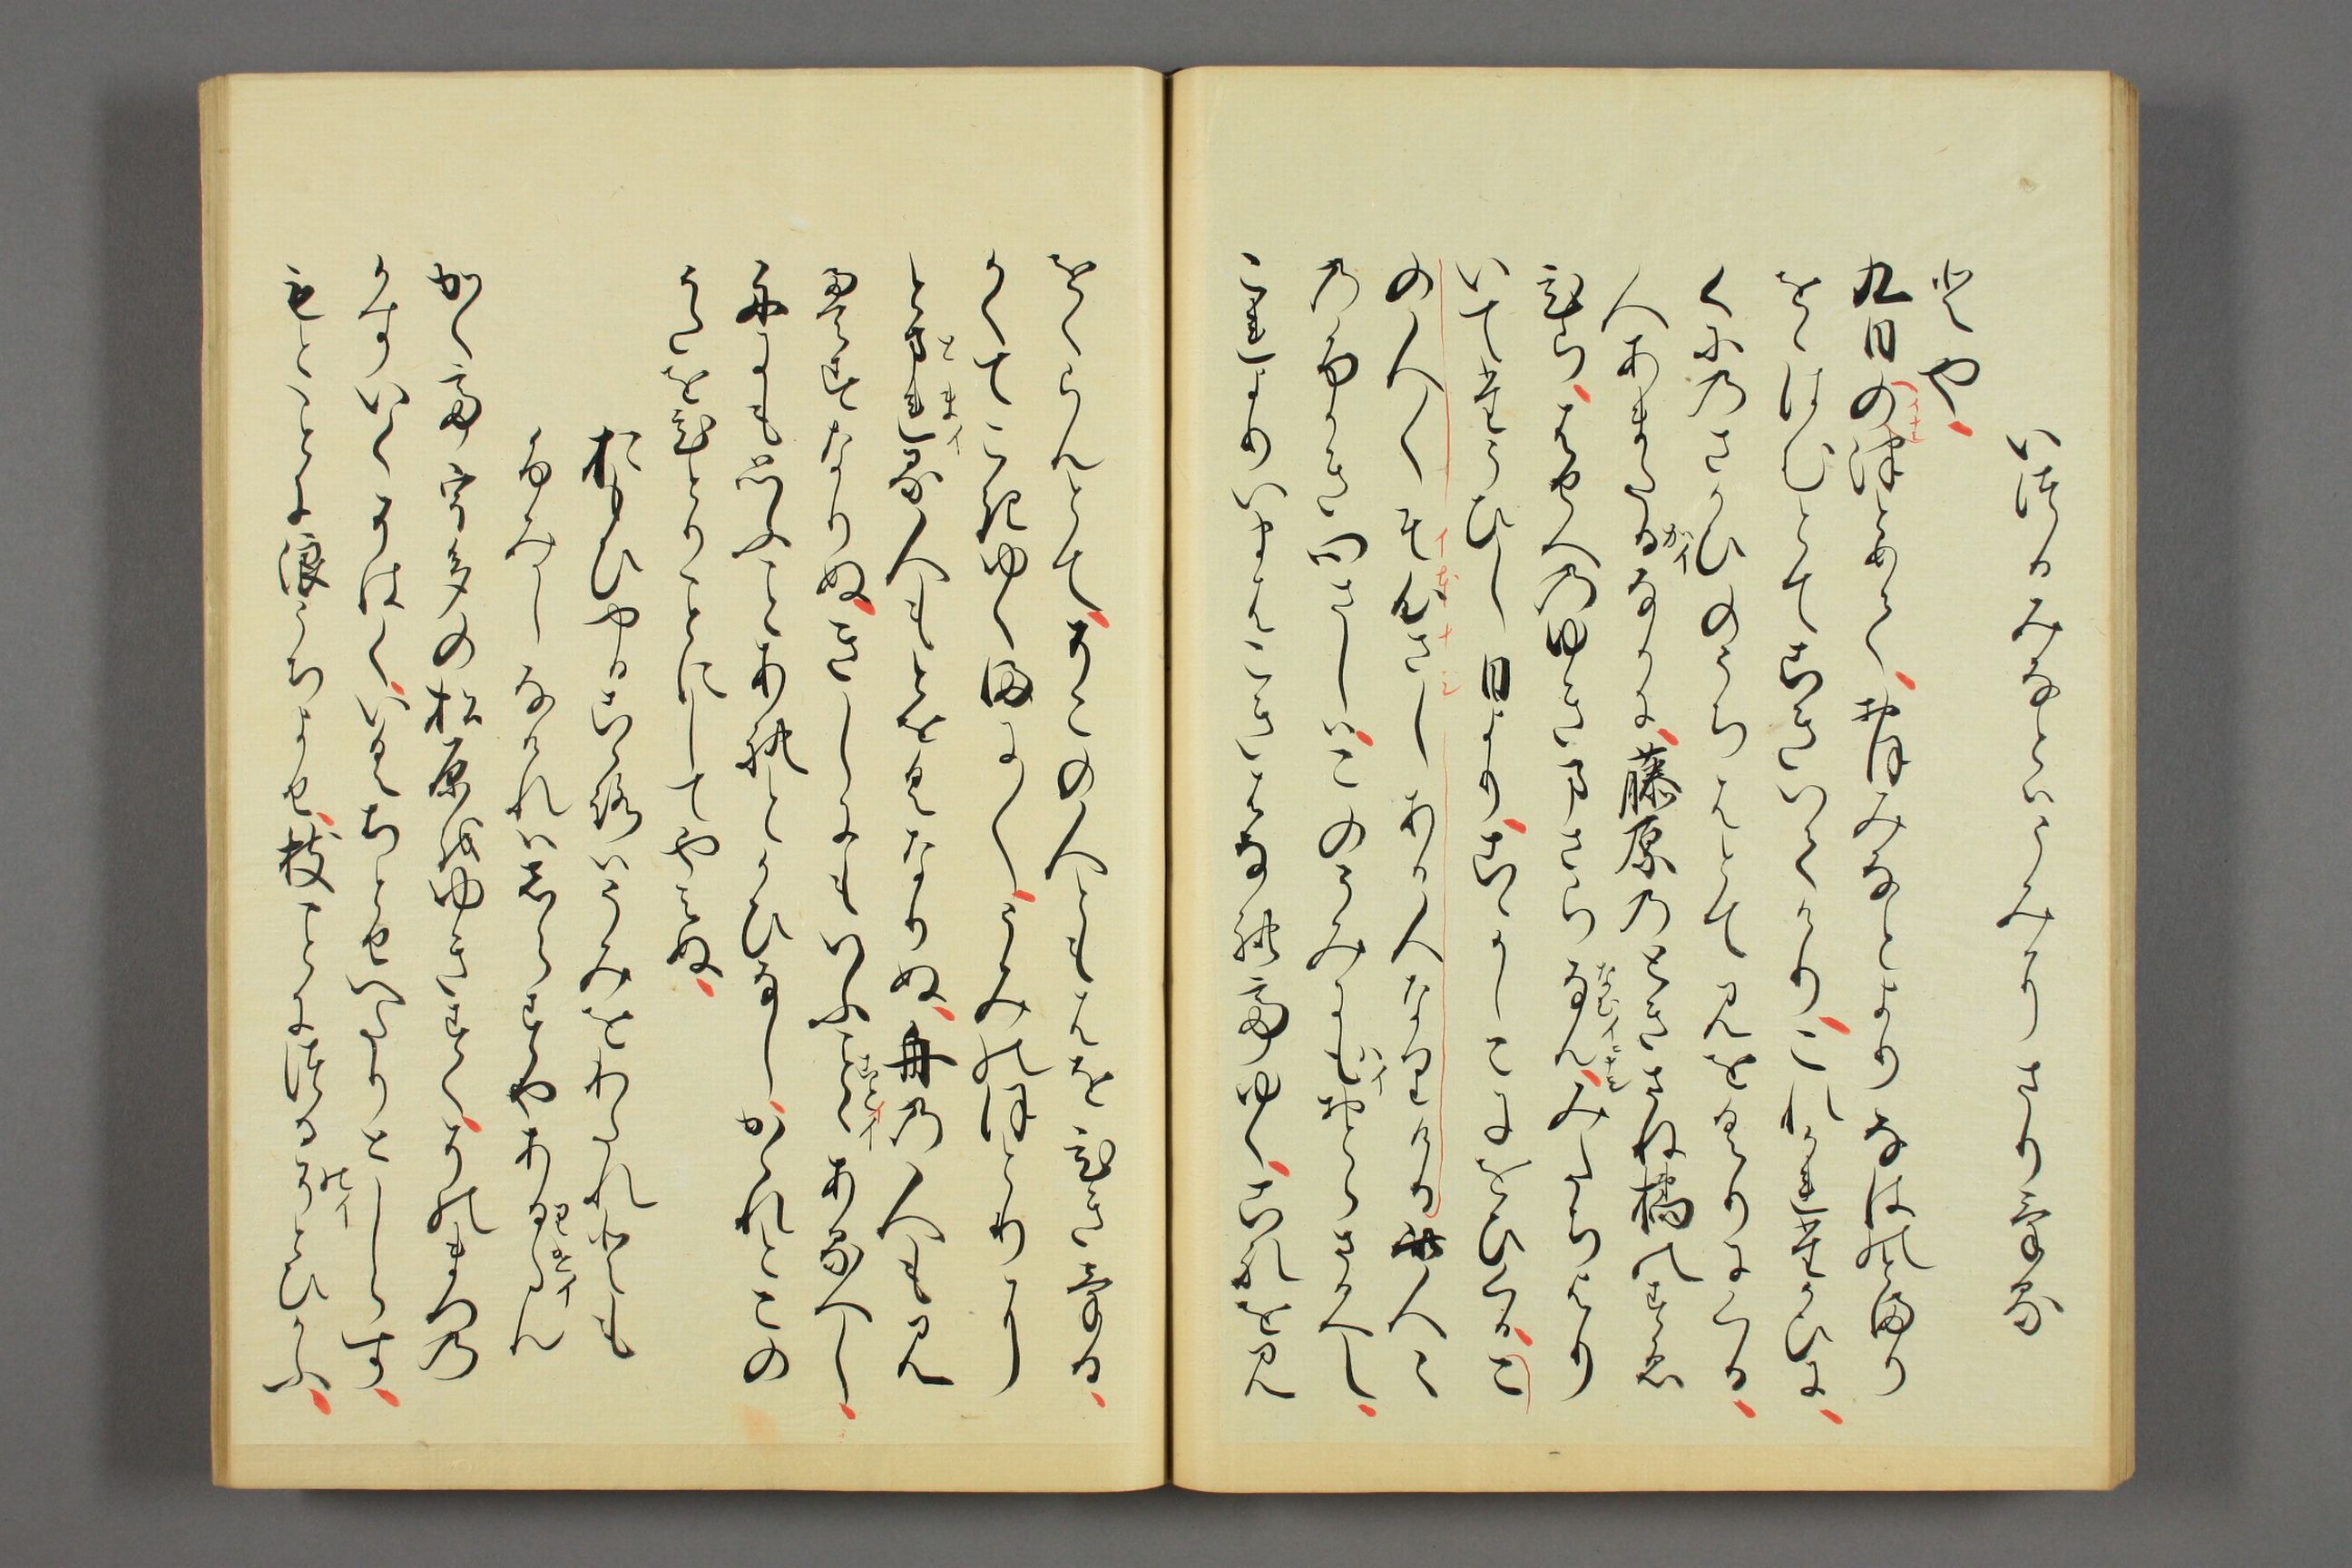 いつれのみなとといふみにかさりける
とや
九日のつとめておほみなとよりなはのとまり
をおはむとてこきいてけりこれかれたかひに
くにのさかひのうちはとて見をくりにくる
人あまたかイるなかに藤原のときさね橘のすゑ
ひらはせへのゆきまさらなんなむイみたちより
いてたうひし日よりこゝかしこにをひくるこ
の人〳〵そ心さしある人なりけるこの人〳〵
のふかき心さしはこのうみにもはイおとらさるへし
これよりいまはこきはなれてゆくこれを見
をくらんとてそこの人ともはをひきける
かくてこきゆくまに〳〵うみのほとりに
とまとまイれる人もとをくなりぬ舟の人も見
えすなりぬきしにもいふことことイあるへし
舟にも思ふことあれとかひなしかゝれとこの
うたをひとりことにしてやみぬ
おもひやるこゝろはうみをわたれとも
ふみしなけれはしらすやあるらん
かくて宇多の松原をゆきすくその松の
かすいくそはくいくちとせへたりとしらす
もとことに浪うちよせ枝ことにつるそのイとひかふ